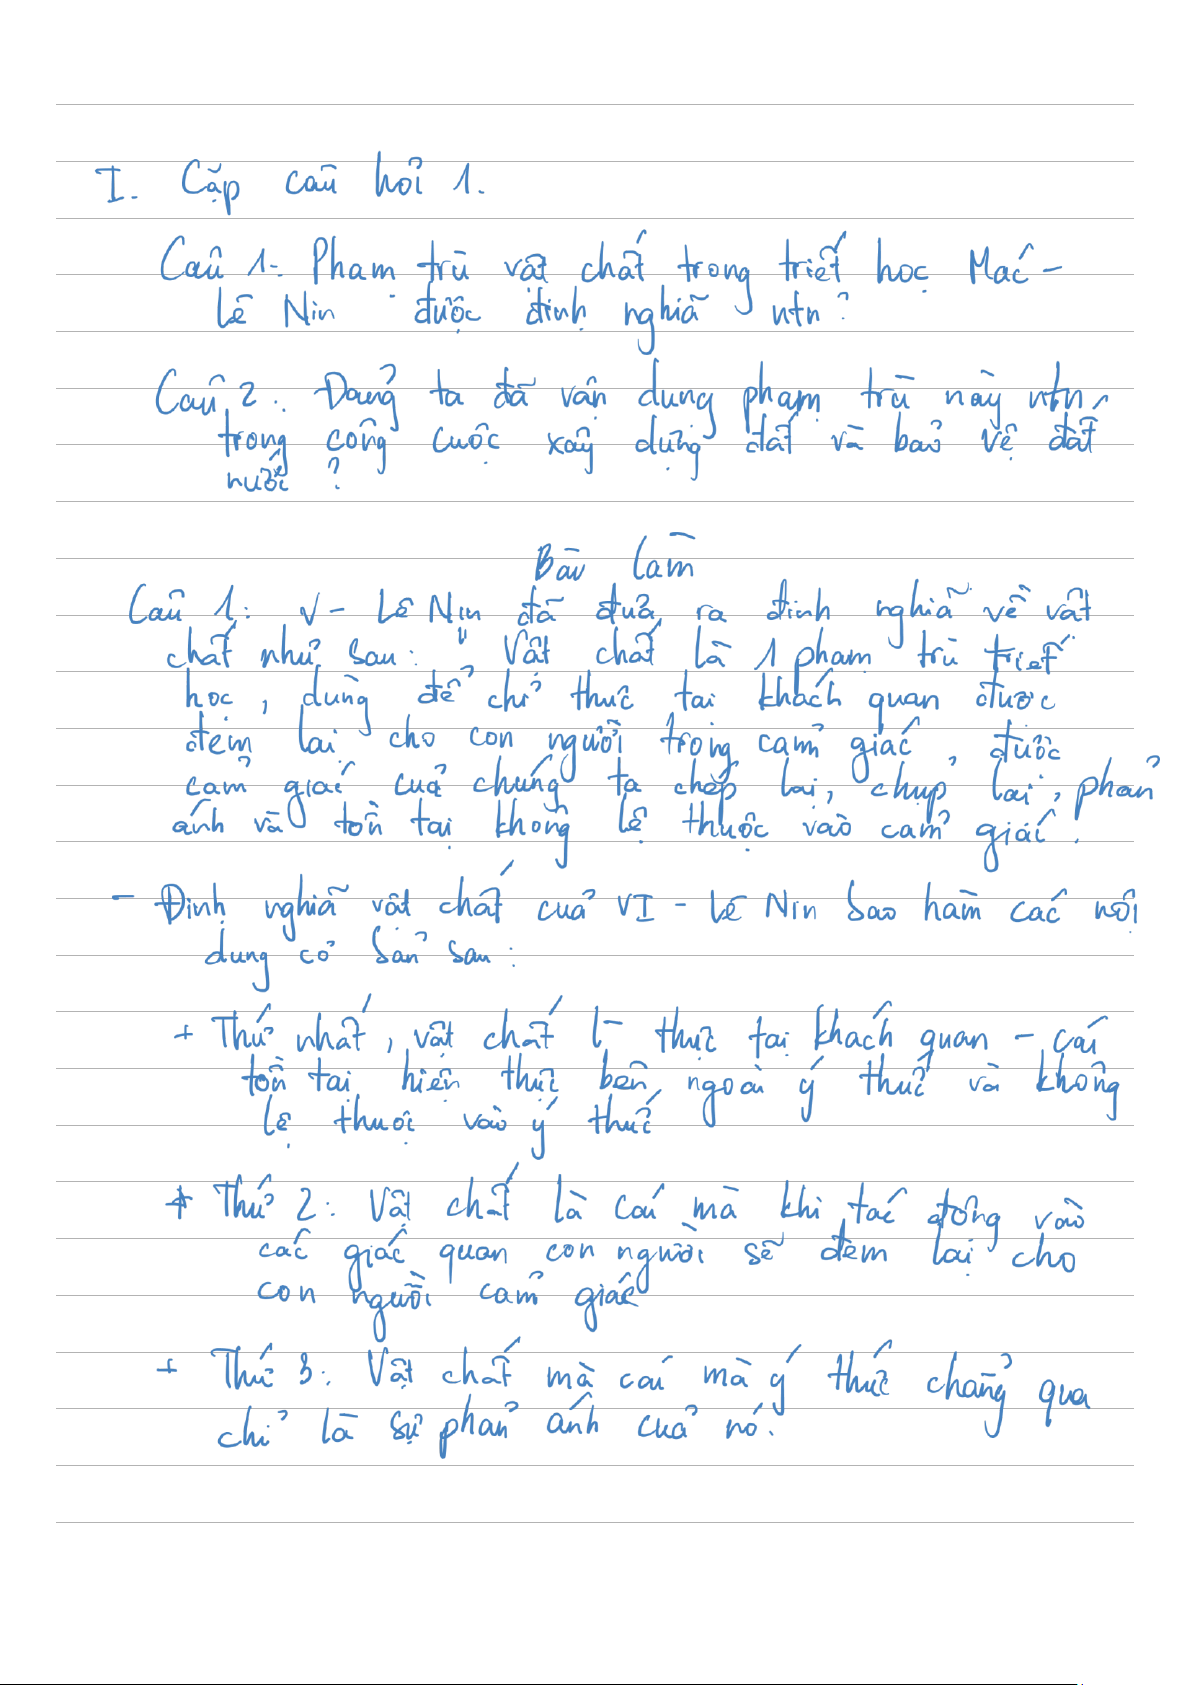 I. Cặp câu hỏi 1.
Câu 1: Phạm trù vật chất trong triết học Mác -
Lê Nin được định nghĩa ntn?
Câu 2: Đảng ta đã vận dụng phạm trù này ntn
trong công cuộc xây dựng đất và bảo vệ đất
nước ?
Bài làm
Câu 1: V - Lê Nin đã đưa ra định nghĩa về vật
chất như sau: " Vật chất là 1 phạm trù triết
học, dùng để chỉ thực tại khách quan được
đem lại cho con người trong cảm giác, được
cảm giác của chúng ta chép lại, chụp lại, phản
ánh và tồn tại không lệ thuộc vào cảm giác.
- Định nghĩa vật chất của VI - Lê Nin bao hàm các nội
dung cơ bản sau:
+ Thứ nhất, vật chất l- thực tại khách quan - cái
tồn tại hiện thực bên ngoài ý thức và không
lệ thuộc vào ý thức
+ Thứ 2: Vật chất là cái mà khi tác động vào
các giác quan con người sẽ đem lại cho
con người cảm giác
+ Thứ 3: Vật chất mà cái mà ý thức chẳng qua
chỉ là sự phản ánh của nó.